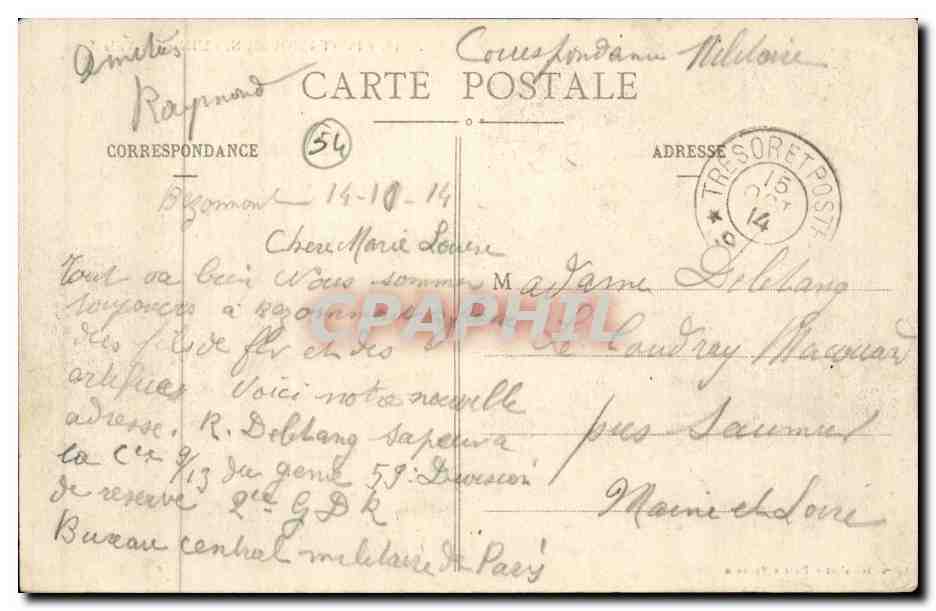 Correspondance Militaire
Amitiés
Raymond
CARTE POSTALE
54
CORRESPONDANCE
ADRESSE
TRESOR ET POSTES
15
OCT
14
14-10-14
Chere Marie Louise
Tout va bien Nous sommes
toujours à
des fils de fer et des
artifices Voici notre nouvelle
adresse. R. Deletang sapeur a
la Cie 9/13 du genie 59e Division
de reserve 2eme G D R
Bureau central militaire de Paris
Madame Deletang
Le Coudray Macouard
pres Saumur
Maine et Loire
CPAPHIL